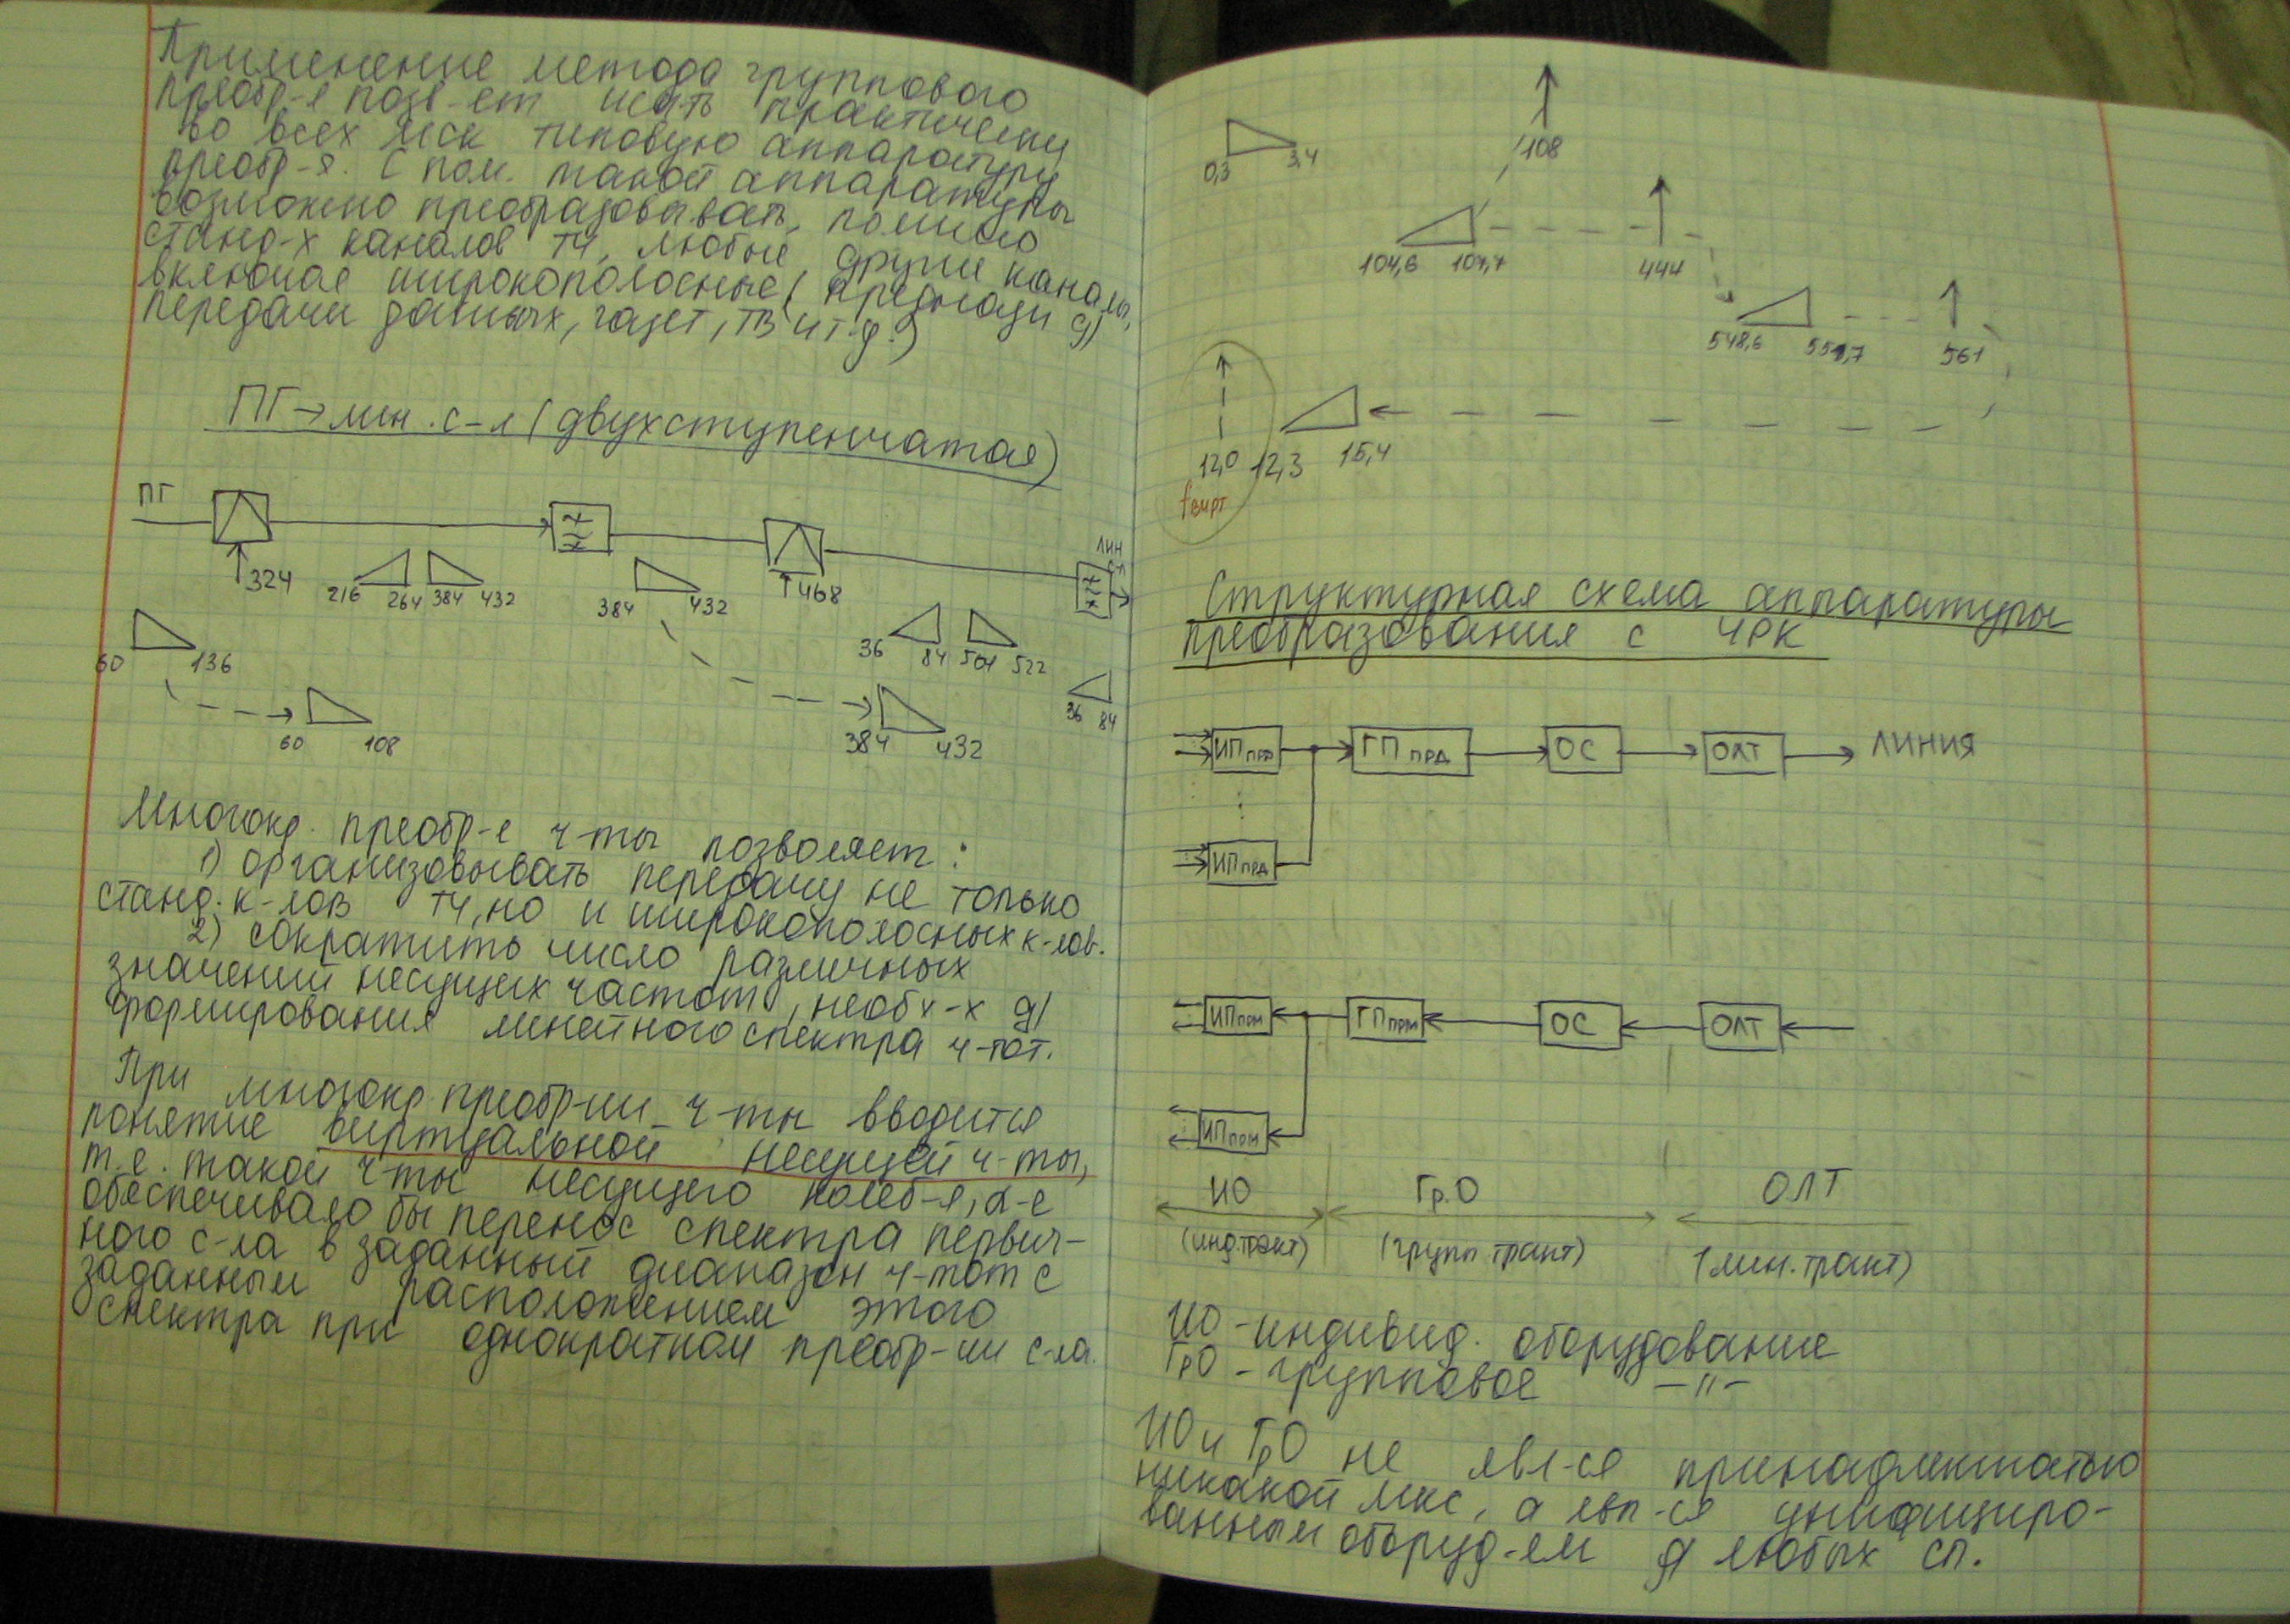 Применение метода группового
преобр-я позв-ет исп-ть практически
во всех мск типовую аппаратуру
преобр-я. С пом. такой аппаратуры
возможно преобразовывать, помимо
станд-х каналов ТЧ, любые другие каналы,
включая широкополосные (предназн д/
передачи данных, газет, ТВ и т.д.)
ПГ→лин. с-л (двухступенчатая)
ПГ
324
216 264 384 432
384 432
468
лин
сп
60 136
36 84 504 522
36 84
60 108
384 432
Многокр. преобр-е ч-ты позволяет:
1) организовывать передачу не только
станд. к-лов ТЧ, но и широкополосных к-лов.
2) сократить число различных
значений несущих частот, необх-х д/
формирования линейного спектра ч-тот.
При многокр преобр-ии ч-ты вводится
понятие виртуальной несущей ч-ты,
т.е. такой ч-ты несущего колеб-я, к-е
обеспечивало бы перенос спектра первич-
ного с-ла в заданный диапазон ч-тот с
заданным расположением этого
спектра при однократном преобр-ии с-ла.
0,3 3,4
108
104,6 107,7
444
548,6 551,7
561
12,0 12,3 15,4
fвирт
Структурная схема аппаратуры
преобразования с ЧРК
ИПпрд ГПпрд ОС ОЛТ ЛИНИЯ
ИПпрд
ИПпрм ГПпрм ОС ОЛТ
ИПпрм
ИО Гр.О ОЛТ
(инд.тракт) (групп тракт) (лин. тракт)
ИО - индивид. оборудование
ГрО - групповое -"-
ИО и ГрО не явл-ся принадлежностью
никакой мкс, а явл-ся унифициро-
ванным оборуд-ем д/ любых сп.